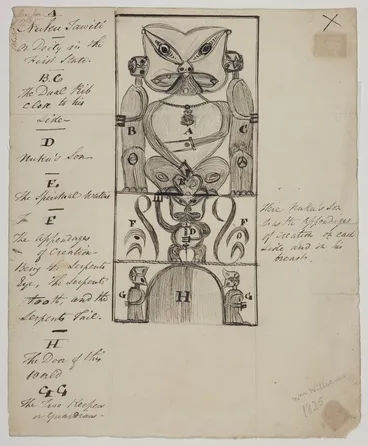 A
Nuku Tawiti
A Deity in the
First State.
B.C
The Dual Rib
close to his
side
D
Nuku's Son
E.
The Spiritual Waters
F
The Appendages
of Creation
Being the Serpents
Eye, the Serpents
tooth, and the
Serpents Tail.
H
The Door of this
World
G G
The Two Keepers
or Guardians
B
A
C
E
D
F
F
G
H
G
Here Nuku's Son
has the Appendages
of creation on each
side and on his
breast.
Wm Williams
1825